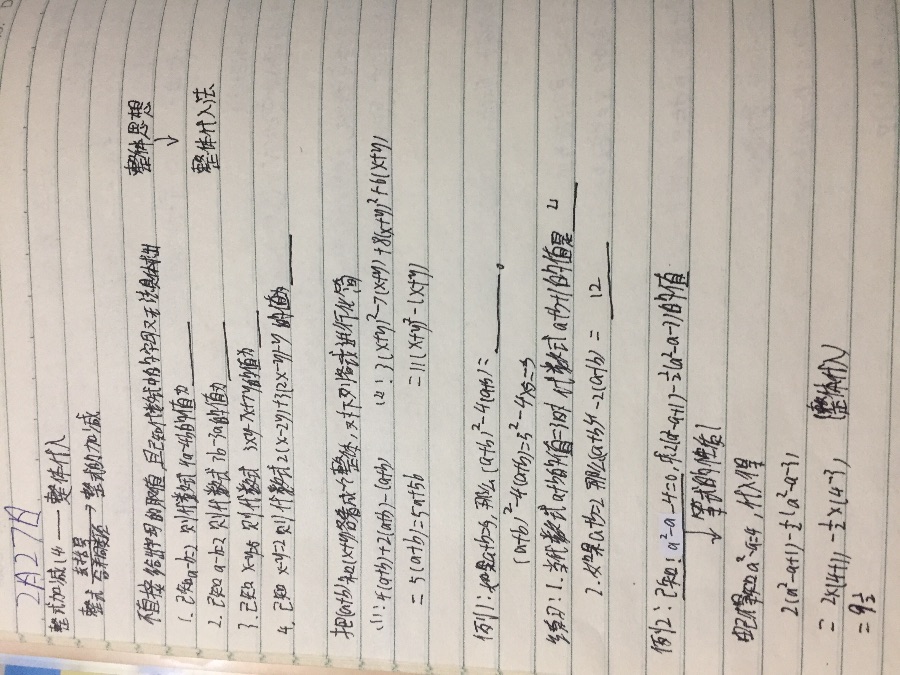 2月27日
整式加减(4 —— 整体代入
去括号
整式 合并同类项 → 整式的加减
不直接给出字母的取值,且已知代数式中的字母又无法具体求出 整体思想
↓
1. 已知a-b=3 则代数式 4a-4b的值为____ 整体代入法
2. 已知a-b=2 则代数式 3b-3a的值为____
3. 已知 x-y=6 则代数式 3x-y的值为____
4. 已知 x-y=2 则代数式2(x-2y)+3(2x-y)-y 的值为____
把(a+b)和(x+y)各看成一个整体,对下列各式进行化简
(1): 4(a+b)+2(a+b)-(a+b) (2: 3(x+y)²-7(x+y)+8(x+y)²+6(x+y)
=5(a+b)=5a+5b =11(x+y)²-(x+y)
例1:如果a+b=5, 那么(a+b)²-4(a+b)=____。
(a+b)²-4(a+b)=5²-4×5=5
练习:1.当代数式a+b的值=3时 代数式a+b+1的值是 4
2.如果(a+b)=2 那么(a+b)4-2(a+b)= 12
例2: 已知:a²-a-4=0, 求2(a²-a+1)-½(a²-a-7)的值
↓ 等式的性质1
由已知得a²-a=4, 代入得
2(a²-a+1)-½(a²-a-3),
= 2×(4+1)-½×(4-3), (整体代入)
=9½